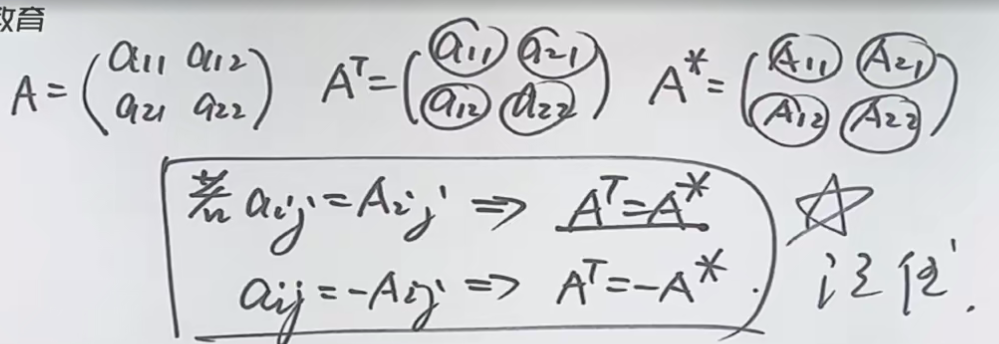 教育
A = (a11 a12 a21 a22) Aᵀ = (a11 a21 a12 a22) A* = (A11 A21 A12 A22)
若 aij = Aij ⇒ Aᵀ = A* ☆
aij = -Aij ⇒ Aᵀ = -A*. 记住.